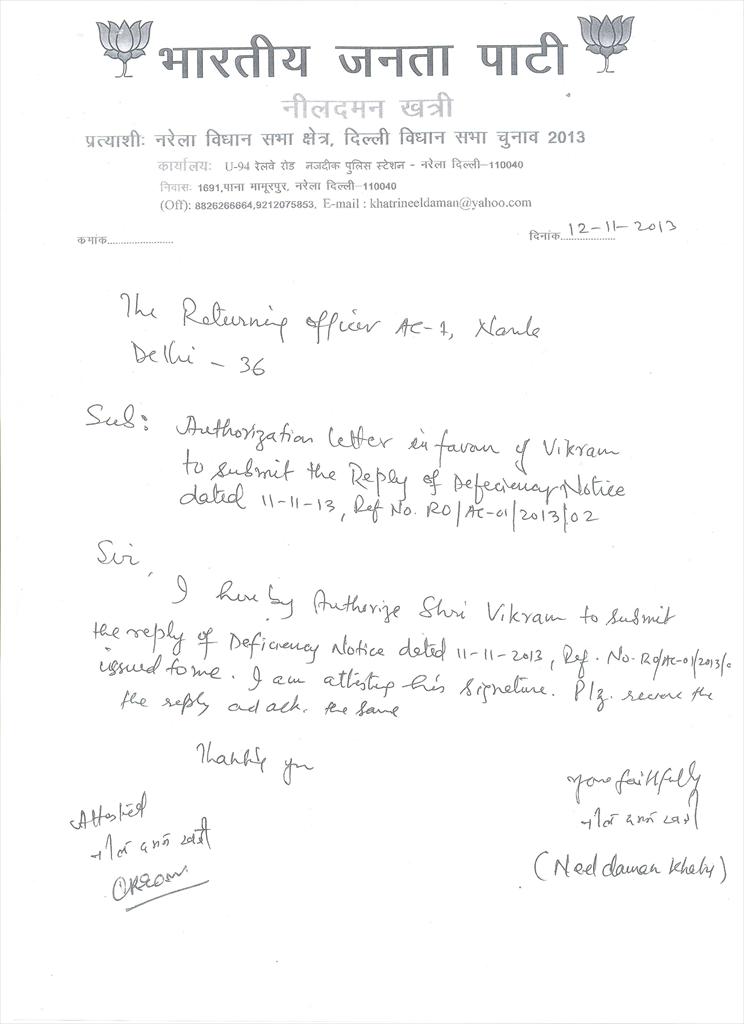 भारतीय जनता पाटी
नीलदमन खत्री
प्रत्याशीः नरेला विधान सभा क्षेत्र, दिल्ली विधान सभा चुनाव 2013
कार्यालयः U-94 रेलवे रोड नजदीक पुलिस स्टेशन - नरेला दिल्ली-110040
निवासः 1691,पाना मामूरपुर, नरेला दिल्ली-110040
(Off): 8826266664,9212075853, E-mail : khatrineeldaman@yahoo.com
क्मांक....................... दिनांक 12-11-2013
The Returning Officer AC-1, Narela
Delhi - 36
Sub: Authorization letter in favour of Vikram
to submit the Reply of Defeciency Notice
dated 11-11-13, Ref No. RO/AC-01/2013/02
Sir,
I here by Authorize Shri Vikram to submit
the reply of Deficiency Notice dated 11-11-2013, Ref. No. RO/AC-01/2013/0
issued to me. I am attesting his signature. Plz. receive the
the reply and ack. the same
Thanking you
Yours faithfully
Attested
नील दमन खत्री
नील दमन खत्री
(Neel daman Khatri)